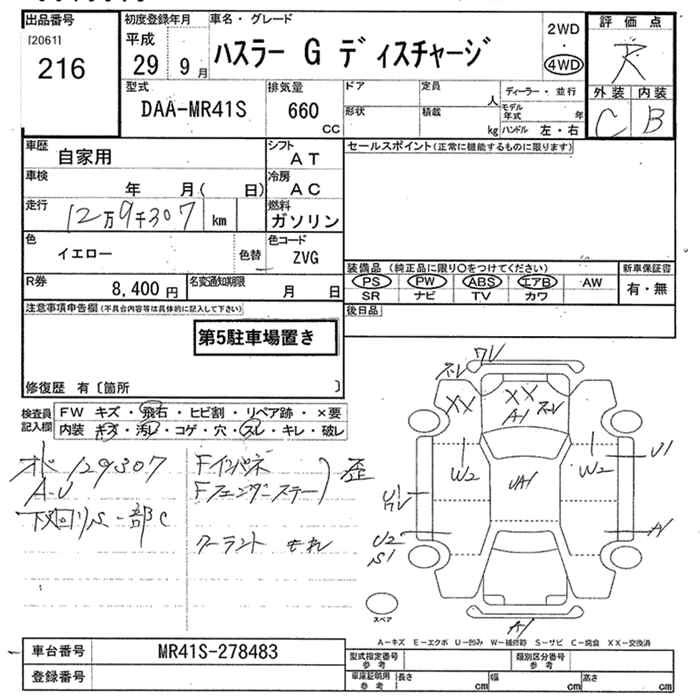 出品番号
[2061]
216
初度登録年月
平成
29 9 月
車名・グレード
ハスラー G ディスチャージ
2WD
・
4WD
評価点
R
外装 内装
C B
型式
DAA-MR41S
排気量
660
CC
ドア
定員
人
形状
積載
kg
ディーラー・並行
モデル年式 年
ハンドル 左・右
車歴
自家用
シフト
AT
車検
年 月( 日)
冷房
AC
走行
12万9千307 km
燃料
ガソリン
色
イエロー
色替
色コード
ZVG
R券
8,400 円
名変通知期限
月 日
セールスポイント(正常に機能するものに限ります)
装備品(純正品に限り○をつけてください)
新車保証書
PS PW ABS エアB AW
SR ナビ TV カワ
有・無
後日品
注意事項申告欄(不具合内容等は具体的に記入して下さい)
第5駐車場置き
修復歴 有〔箇所 〕
検査員記入欄
FW キズ・飛石・ヒビ割・リペア跡・×要
内装 キズ・汚レ・コゲ・穴・スレ・キレ・破レ
オド129307
A-U
下廻りS一部C
Fインパネ
Fフェンダーステー
歪
クーラント モレ
ワレ
ズレ
XX
XX
A1
ズレ
W2
UA1
W2
U1
U1
ワレ
U2
S1
A1
A1
スペア
A-キズ E-エクボ U-凹み W-補修跡 S-サビ C-腐食 XX-交換済
車台番号
MR41S-278483
登録番号
型式指定番号
参考
類別区分番号
参考
車庫証明用
参考
長さ cm
幅 cm
高さ cm